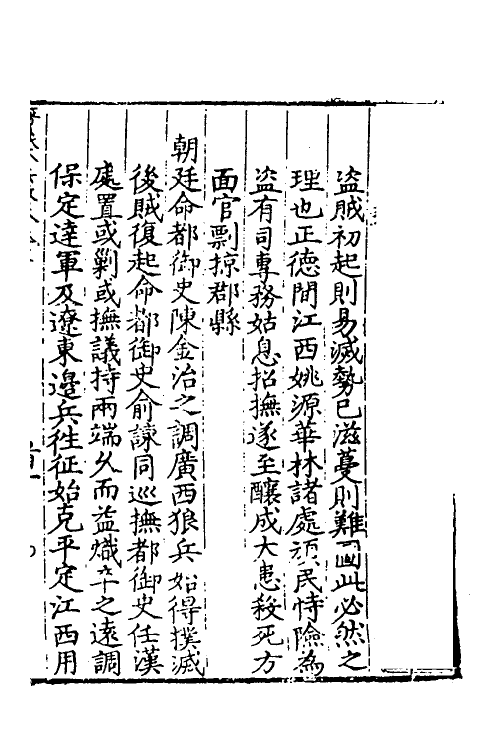 盗賊初起則易滅勢已滋蔓則難圖此必然之
理也正德間江西姚源華林諸處頑民恃險為
盗有司專務姑息招撫遂至釀成大患殺死方
面官剽掠郡縣
朝廷命都御史陳金治之調廣西狼兵始得撲滅
後賊復起命都御史俞諫同巡撫都御史任漢
處置或剿或撫議持兩端乆而益熾卒之遠調
保定達軍及遼東邊兵徃征始克平定江西用